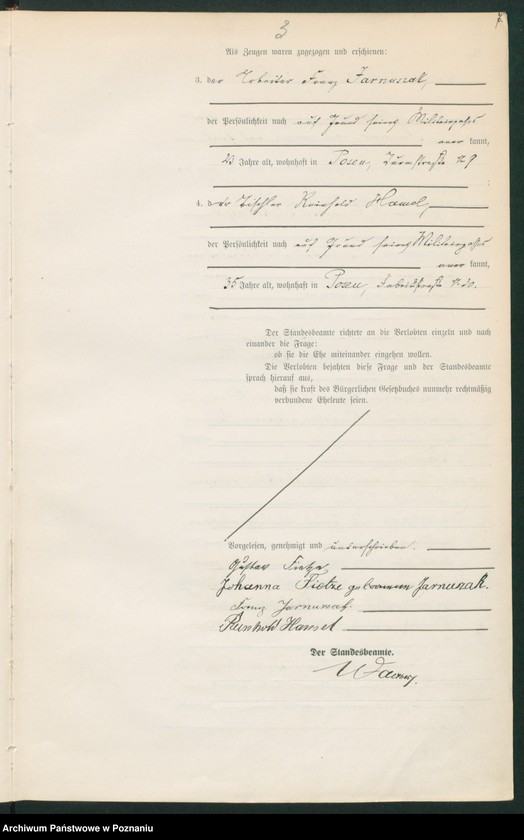 3
Als Zeugen waren zugezogen und erschienen:
3. der Arbeiter Franz Jarnuzak,
der Persönlichkeit nach auf Grund seines Militärpasses
aner kannt,
23 Jahre alt, wohnhaft in Posen,
4. der Tischler Reinhold Hamel,
der Persönlichkeit nach auf Grund seines Militärpasses
aner kannt,
35 Jahre alt, wohnhaft in Posen,
Der Standesbeamte richtete an die Verlobten einzeln und nach
einander die Frage:
ob sie die Ehe miteinander eingehen wollen.
Die Verlobten bejahten diese Frage und der Standesbeamte
sprach hierauf aus,
daß sie kraft des Bürgerlichen Gesetzbuches nunmehr rechtmäßig
verbundene Eheleute seien.
Vorgelesen, genehmigt und unterschrieben.
Gustav Tietze
Johanna Tietze geborenen Jarnuzak.
Franz Jarnuzak.
Reinhold Hamel
Der Standesbeamte.
Archiwum Państwowe w Poznaniu